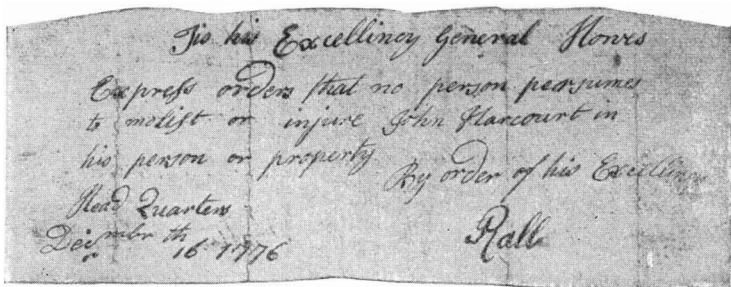 Tis his Excellincy General Howes
Express orders that no person persumes
to molist or injure John Harcourt in
his person or property
By order of his Excellincy
Head Quarters
Decmbr th
16 1776
Rall